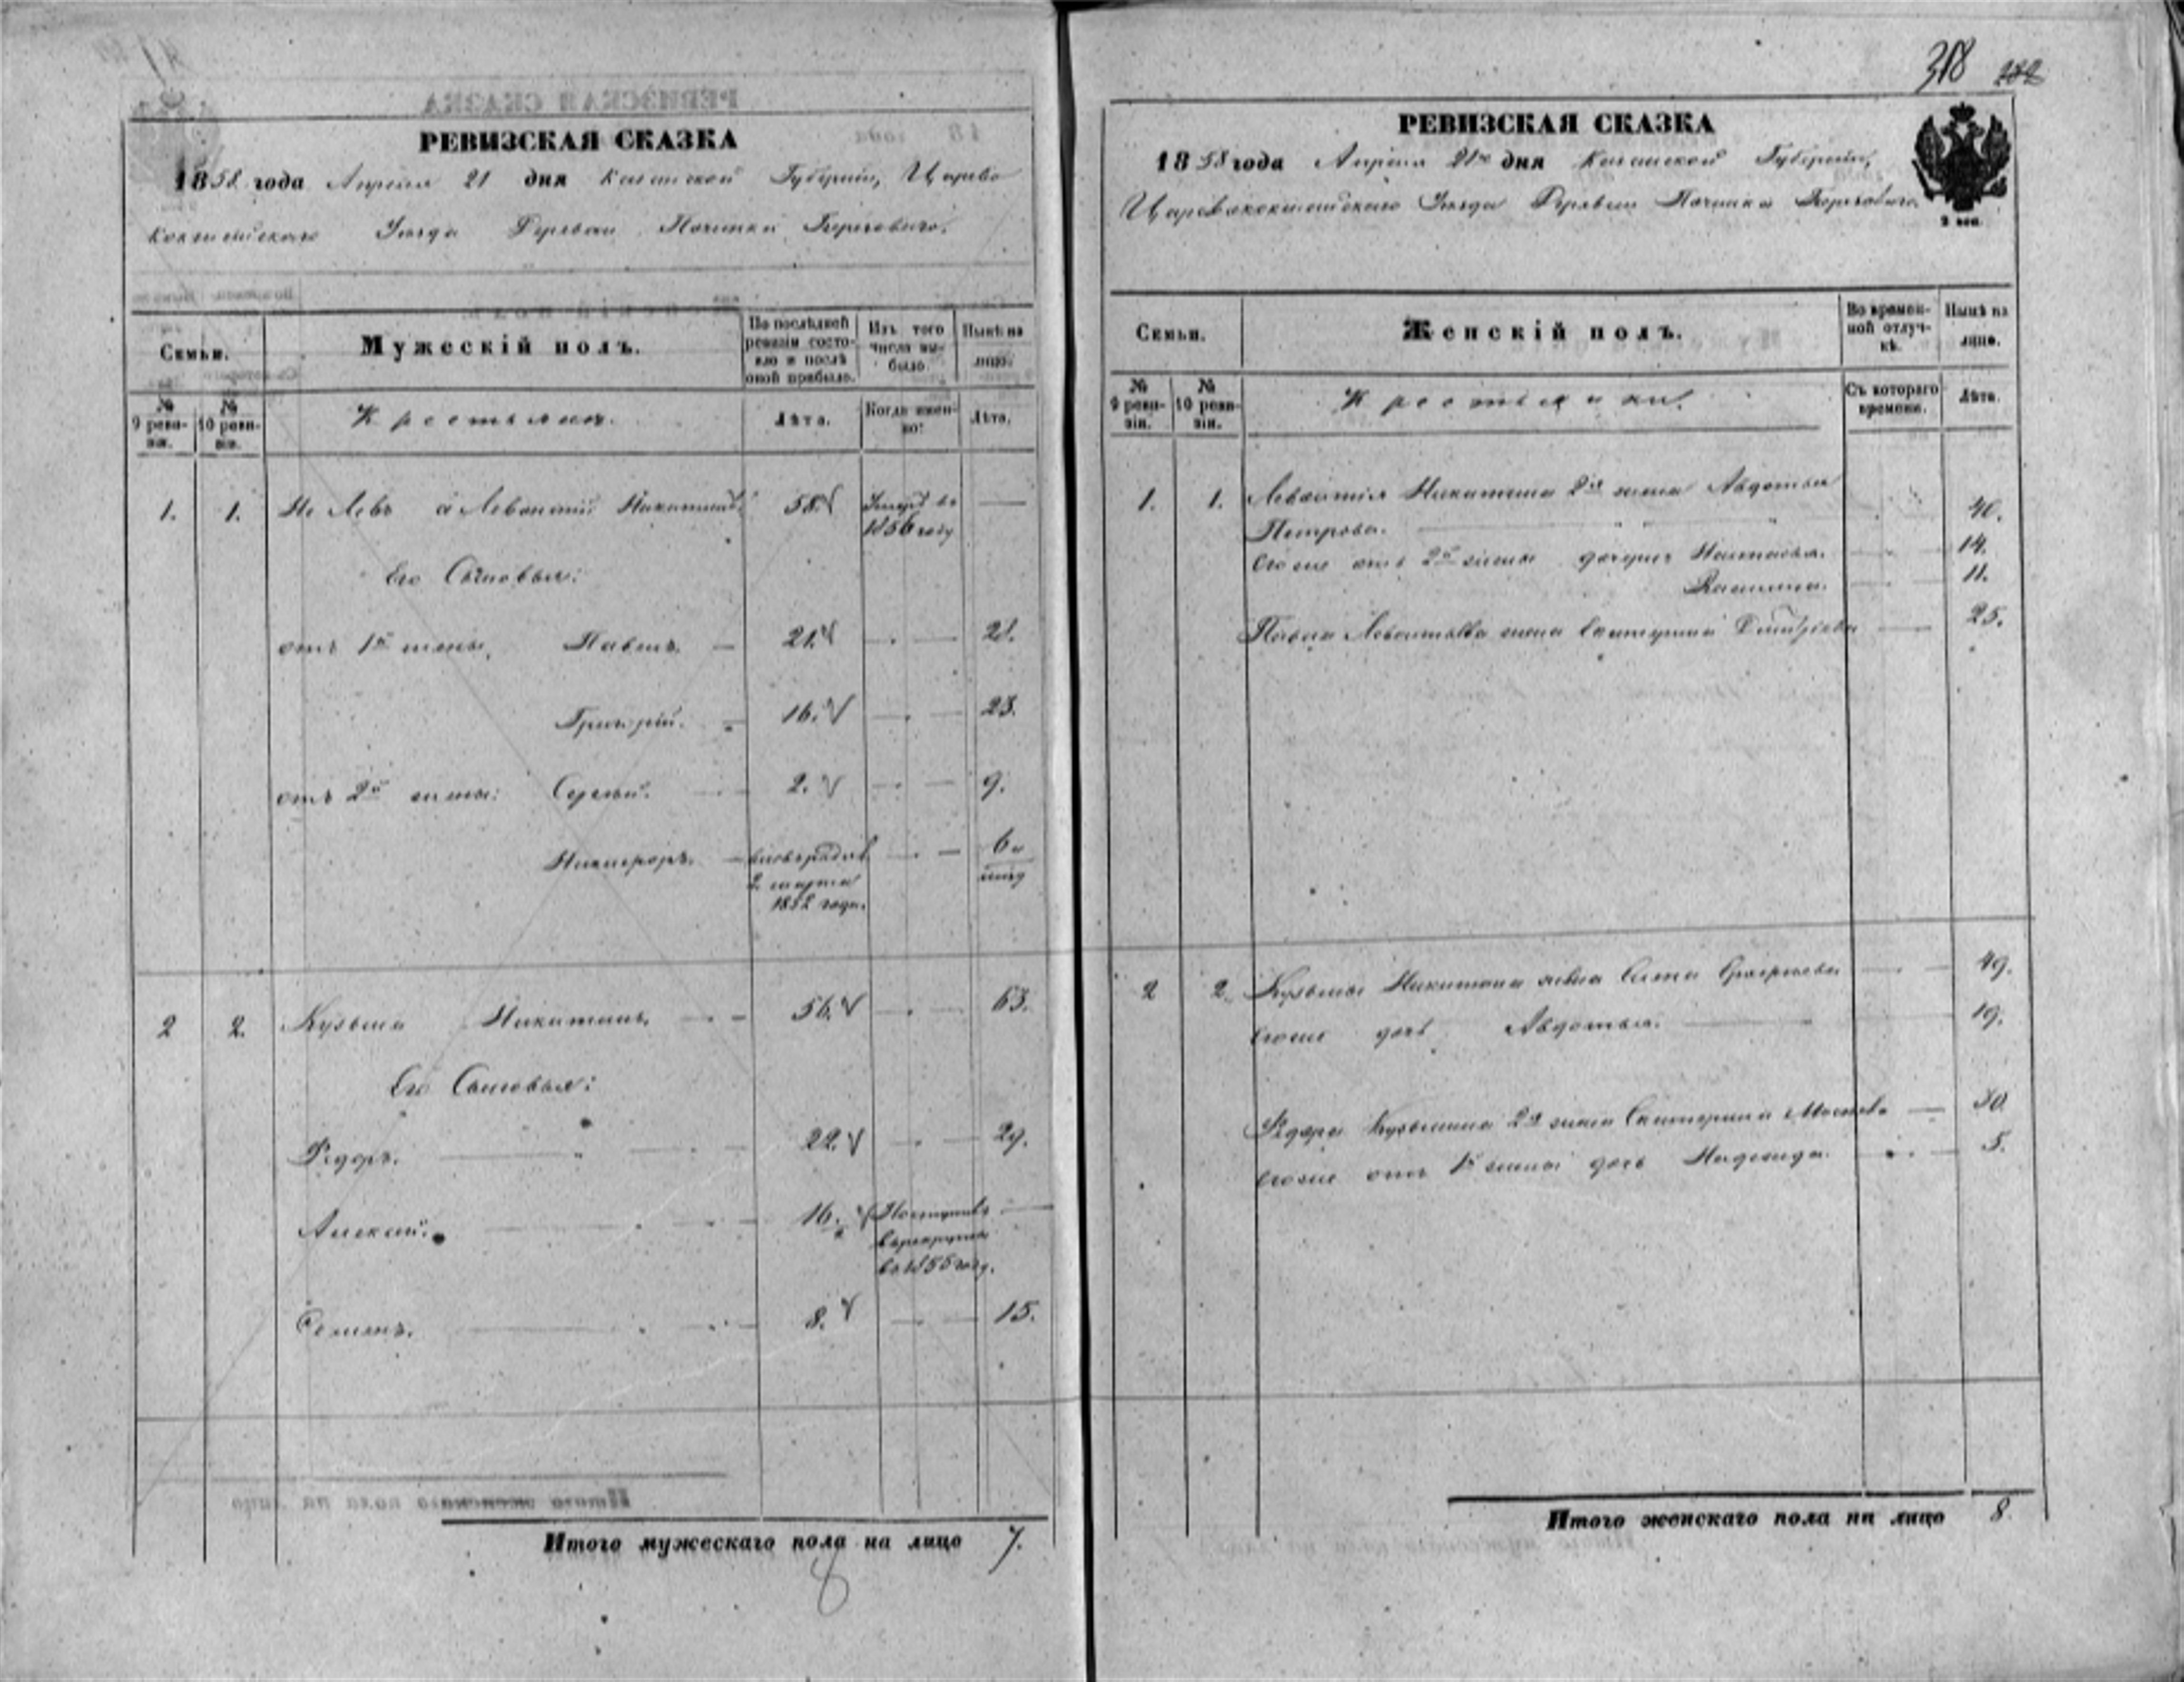 РЕВИЗСКАЯ СКАЗКА
1858 года Апреля 21 дня Казанской Губернiи, Царево
кокшайскаго Уезда Деревни Починка
Семьи.
Мужескiй полъ.
По послѣдней ревизiи состояло и послѣ оной прибыло.
Изъ того числа выбыло.
Нынѣ на лицо.
№ 9 ревизiи.
№ 10 ревизiи.
Крестьяне.
Лѣта.
Когда именно?
Лѣта.
1. 1. Не Левъ а Левонтiй Никитинъ 58. Умеръ въ —
1856 году
Его Сыновья:
отъ 1й жены, Павелъ. — 21. — 28.
Григорiй. 16. — 23.
отъ 2й жены: Сергей. 2. — 9.
Никифоръ. — вновь рожденъ — 6 и
2 марта
1852 года.
2 2. Кузьма Никитинъ. — 56. — 63.
Его Сыновья:
Федоръ. — 22. — 29.
Алексей. — 16. Поступилъ —
в рекруты
въ 1855 году.
Семенъ. — 8. — 15.
Итого мужескаго пола на лицо 7.
8
318 282
РЕВИЗСКАЯ СКАЗКА
1858 года Апреля 21го дня Казанской Губернiи,
Царевококшайскаго Уезда Деревни Починка
2 коп.
Семьи.
Женскiй полъ.
Во временной отлучкѣ.
Нынѣ на лицо.
№ 9 ревизiи.
№ 10 ревизiи.
Крестьянки.
Съ котораго времени.
Лѣта.
1. 1. Левонтiя Никитина 2я жена Авдотья
Петрова. — 40.
его же отъ 2й жены дочери Настасья. — 14.
11.
Павла Левонтьева жена Екатерина Дмитрiева — 25.
2 2. Кузьмы Никитина жена Григорьева — 49.
его же дочь Авдотья. — 19.
Федора Кузьмина 2я жена Екатерина — 30
его же отъ 1й жены дочь Надежда. — 5.
Итого женскаго пола на лицо 8.